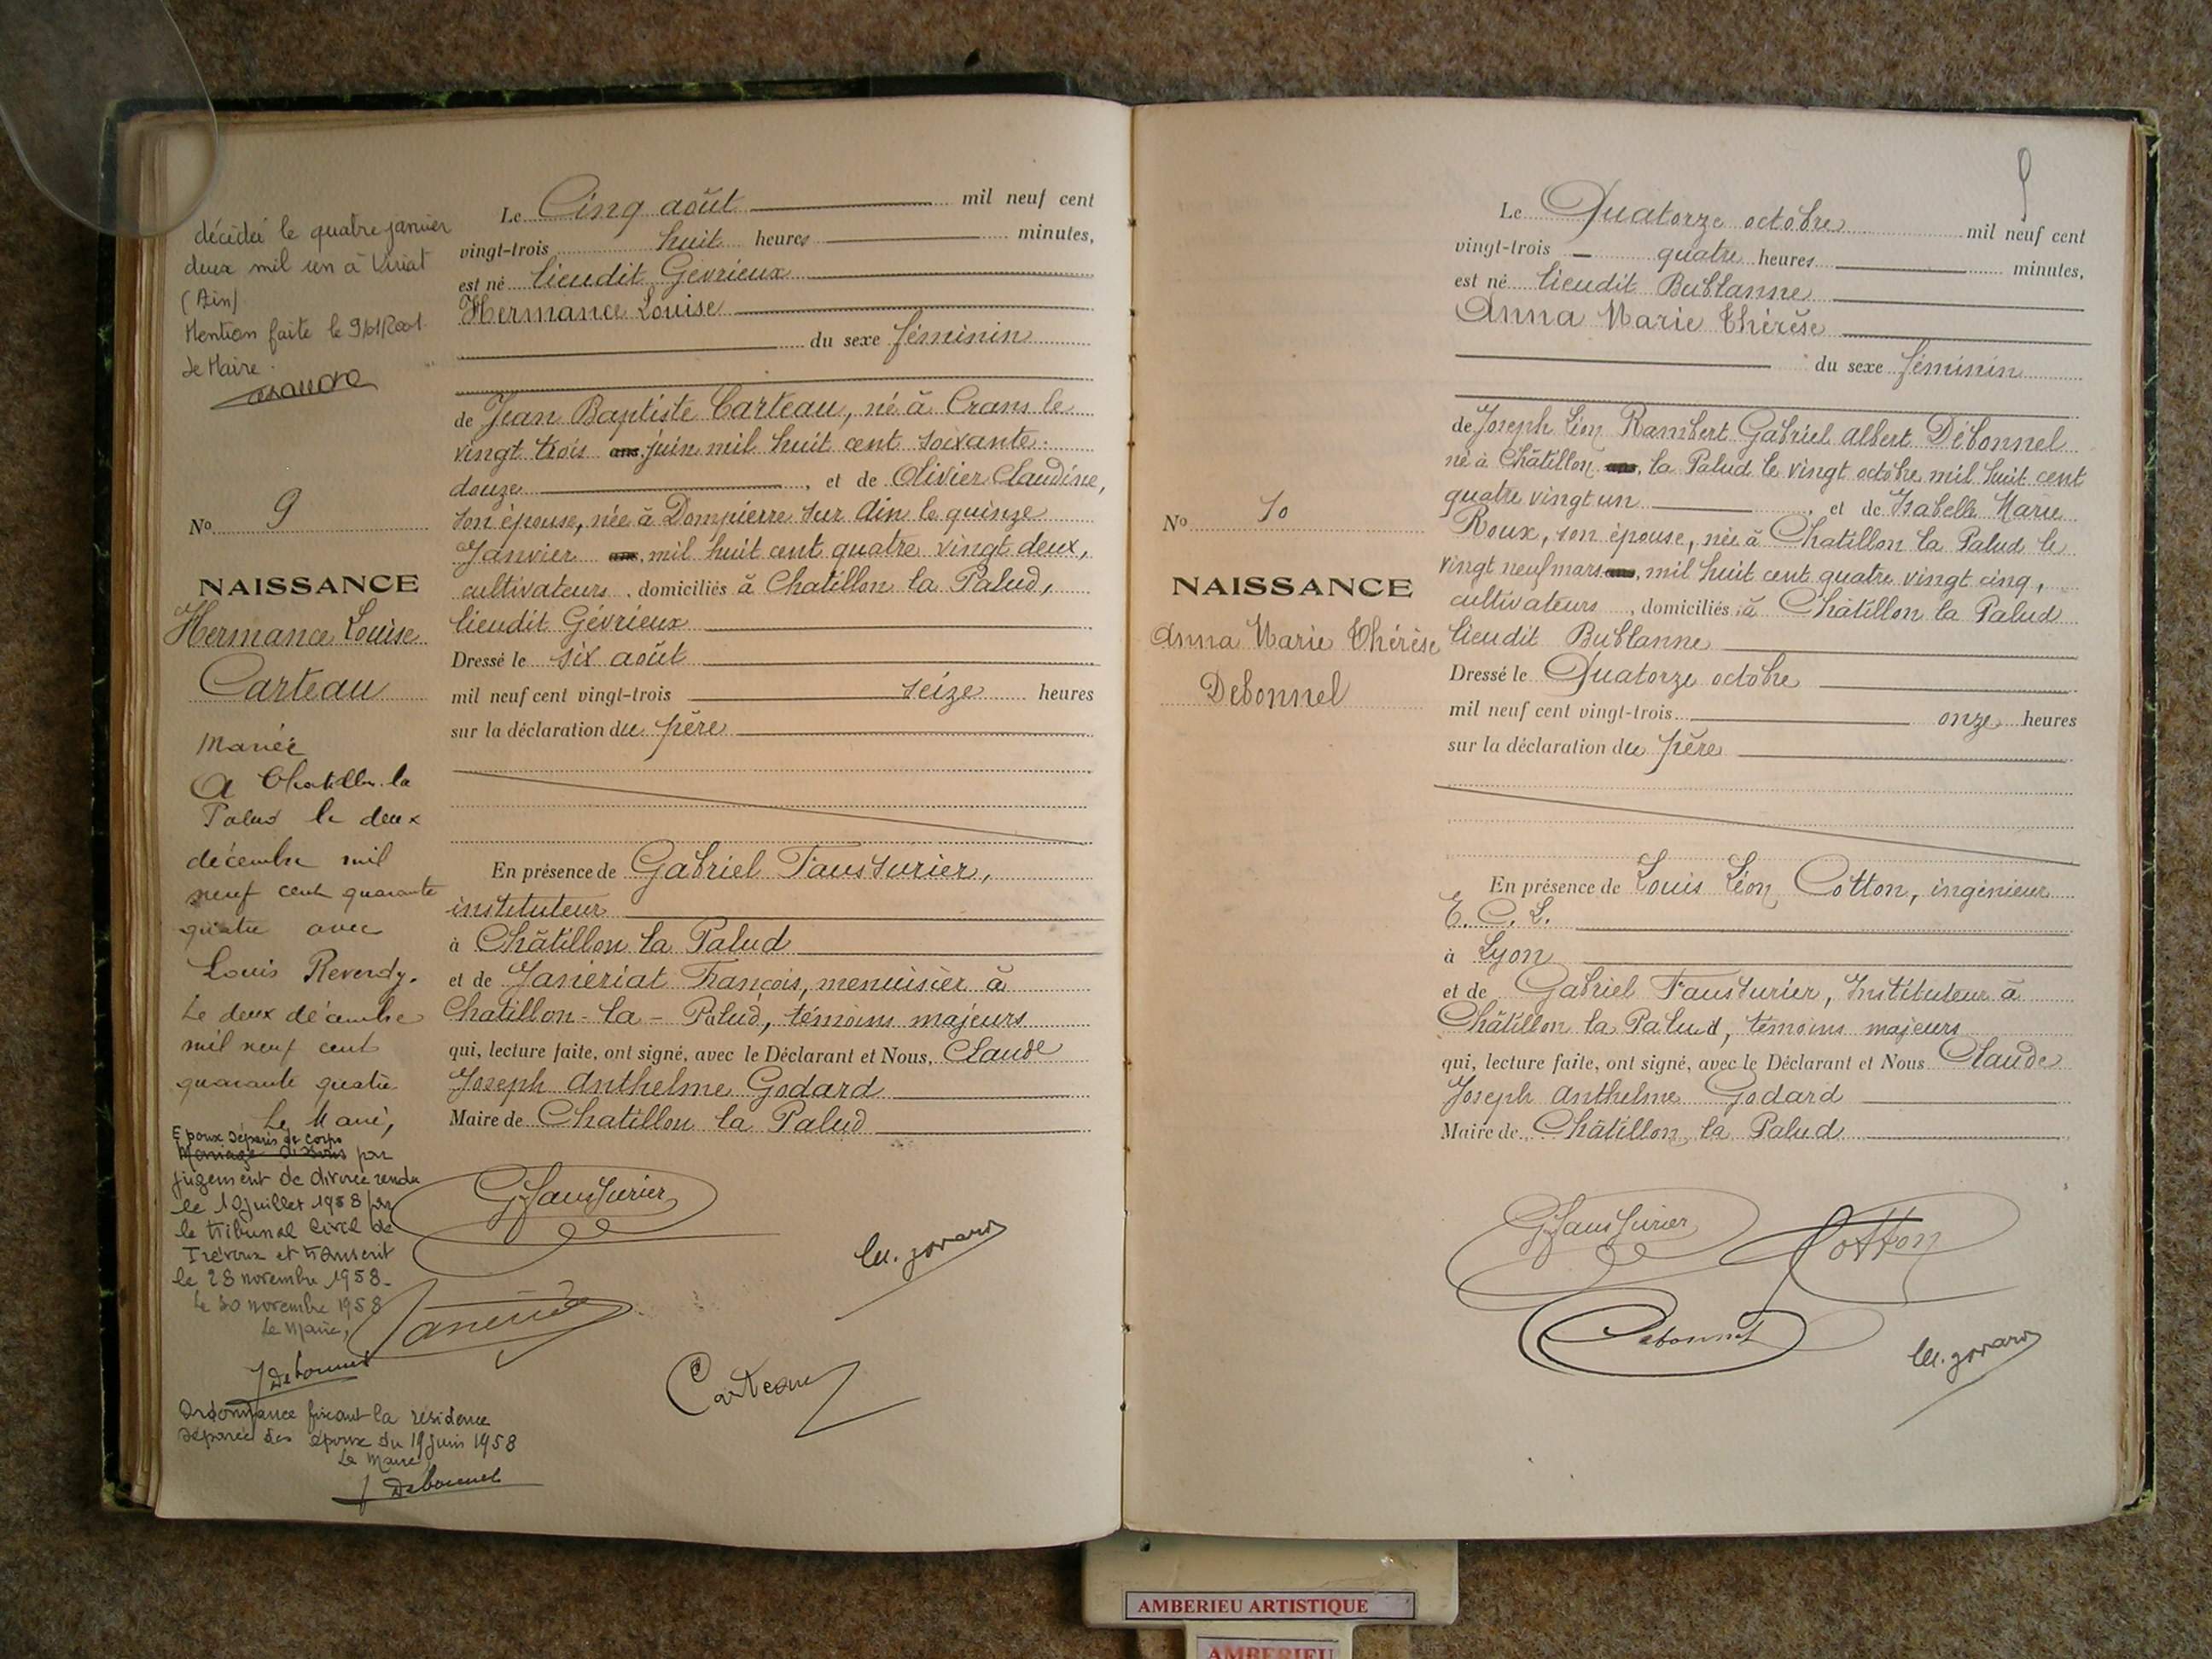 décédée le quatre janvier
deux mil un à Viriat
(Ain)
Mention faite le 9/01/2001.
Le Maire.
N° 9
NAISSANCE
Hermance Louise
Carteau
Mariée
A Chatillon la
Palud le deux
décembre mil
neuf cent quarante
quatre avec
Louis Reverdy.
Le deux décembre
mil neuf cent
quarante quatre
Le Maire,
Epoux séparés de corps
Mariage dissous par
jugement de divorce rendu
le 10 juillet 1958 par
le tribunal Civil de
Trévoux et transcrit
le 28 novembre 1958.
Le 30 novembre 1958
Le Maire,
J Debonnel
Ordonnance fixant la résidence
séparée des époux du 19 juin 1958
Le Maire,
J Debonnel
Le Cinq août mil neuf cent
vingt-trois huit heures minutes,
est né lieudit Gévrieux
Hermance Louise
du sexe féminin
de Jean Baptiste Carteau, né à Crans le
vingt trois ans juin mil huit cent soixante
douze, et de Olivier Claudine,
son épouse, née à Dompierre sur Ain le quinze
Janvier ans, mil huit cent quatre vingt deux,
cultivateurs, domiciliés à Chatillon la Palud,
lieudit Gévrieux
Dressé le six août
mil neuf cent vingt-trois seize heures
sur la déclaration du père
En présence de Gabriel Fausturier,
instituteur
à Châtillon la Palud
et de Janeriat François, menuisier à
Chatillon-la-Palud, témoins majeurs
qui, lecture faite, ont signé, avec le Déclarant et Nous, Claude
Joseph Anthelme Godard
Maire de Chatillon la Palud
G Fausturier
Cl. Godard
Carteau
9
Le Quatorze octobre mil neuf cent
vingt-trois quatre heures minutes,
est né lieudit Bublanne
Anna Marie Thérèse
du sexe féminin
de Joseph Léon Rambert Gabriel Albert Débonnel
né à Châtillon ans, la Palud le vingt octobre mil huit cent
quatre vingt un, et de Isabelle Marie
Roux, son épouse, née à Chatillon la Palud le
vingt neuf mars ans, mil huit cent quatre vingt cinq,
cultivateurs, domiciliés à Châtillon la Palud
lieudit Bublanne
Dressé le Quatorze octobre
mil neuf cent vingt-trois onze heures
sur la déclaration du père
N° 10
NAISSANCE
Anna Marie Thérèse
Debonnel
En présence de Louis Léon Cotton, ingénieur
E. C. L.
à Lyon
et de Gabriel Fausturier, Instituteur à
Châtillon la Palud, témoins majeurs
qui, lecture faite, ont signé, avec le Déclarant et Nous Claude
Joseph Anthelme Godard
Maire de Châtillon la Palud
G Fausturier
Cotton
Debonnel
Cl. Godard
AMBERIEU ARTISTIQUE
AMBERIEU